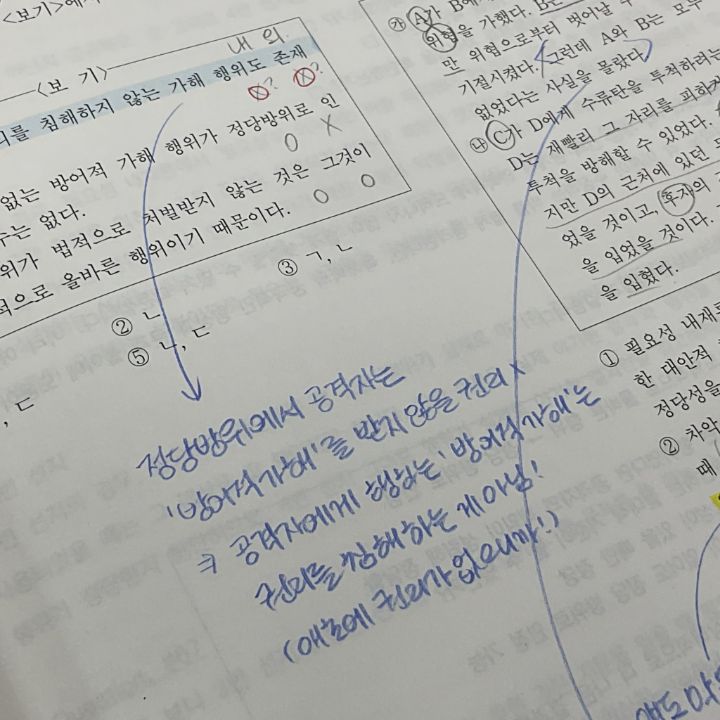 <보기>에
내 외
<보 기>
리를 침해하지 않는 가해 행위도 존재
없는 방어적 가해 행위가 정당방위로 인
수는 없다.
위가 법적으로 처벌받지 않는 것은 그것이
적으로 올바른 행위이기 때문이다.
③ ㄱ, ㄴ
② ㄴ
⑤ ㄴ, ㄷ
, ㄷ
정당방위에서 공격자는
'방어적 가해'를 받지 않을 권리 x
⇒ 공격자에게 행하는 '방어적 가해'는
권리를 침해하는 게 아님!
(애초에 권리가 없으니까!)
㉮ A가 B에
위협을 가했다. B는
만 위협으로부터 벗어날 수
기절시켰다. 그런데 A와 B는 모두
없었다는 사실을 몰랐다.
㉯ C가 D에게 수류탄을 투척하려는
D는 재빨리 그 자리를 피하거
투척을 방해할 수 있었다.
지만 D의 근처에 있던
었을 것이고, 후자의
을 입었을 것이다.
을 입혔다.
① 필요성 내재
한 대안적
정당성을
② 차악
때